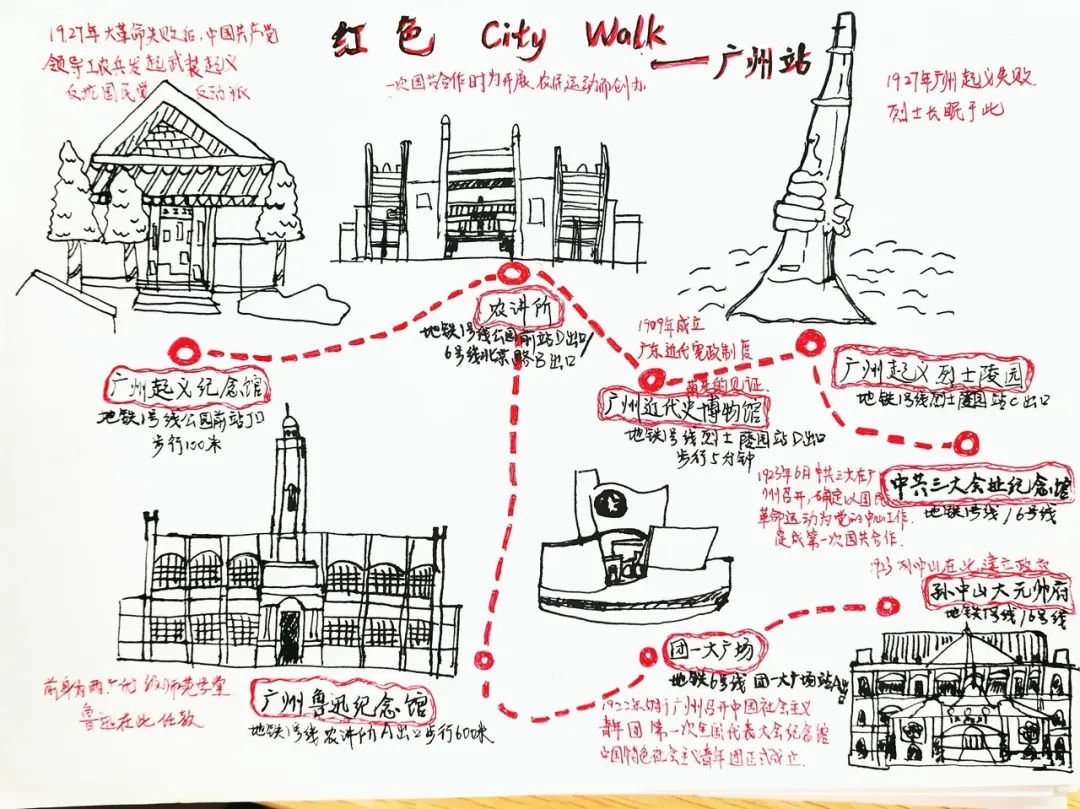 红色 City Walk
——广州站
1927年大革命失败后,中国共产党
领导工农兵发起武装起义
反抗国民党 反动派
一次国共合作时为开展农民运动而创办
1927年广州起义失败
烈士长眠于此
农讲所
地铁1号线公园前站D出口/
6号线北京路B出口
广州起义纪念馆
地铁1号线公园前站J口
步行100米
1909年成立
广东近代宪政制度
的见证.
广州近代史博物馆
地铁1号线烈士陵园站D出口
步行5分钟
广州起义烈士陵园
地铁1号线烈士陵园站C出口
1923年6月中共三大在广
州召开,确定以国民
革命运动为党的中心工作.
促成第一次国共合作.
中共三大会址纪念馆
地铁1号线/6号线
1923 孙中山在此建立政权
孙中山大元帅府
地铁1号线/6号线
团一大广场
地铁6号线 团一大广场站A出口
1922年5月于广州召开中国社会主义
青年团第一次全国代表大会纪念馆
中国特色社会主义青年团正式成立.
前身为两广 师范学堂
鲁迅在此任教
广州鲁迅纪念馆
地铁1号线农讲所A出口步行600米